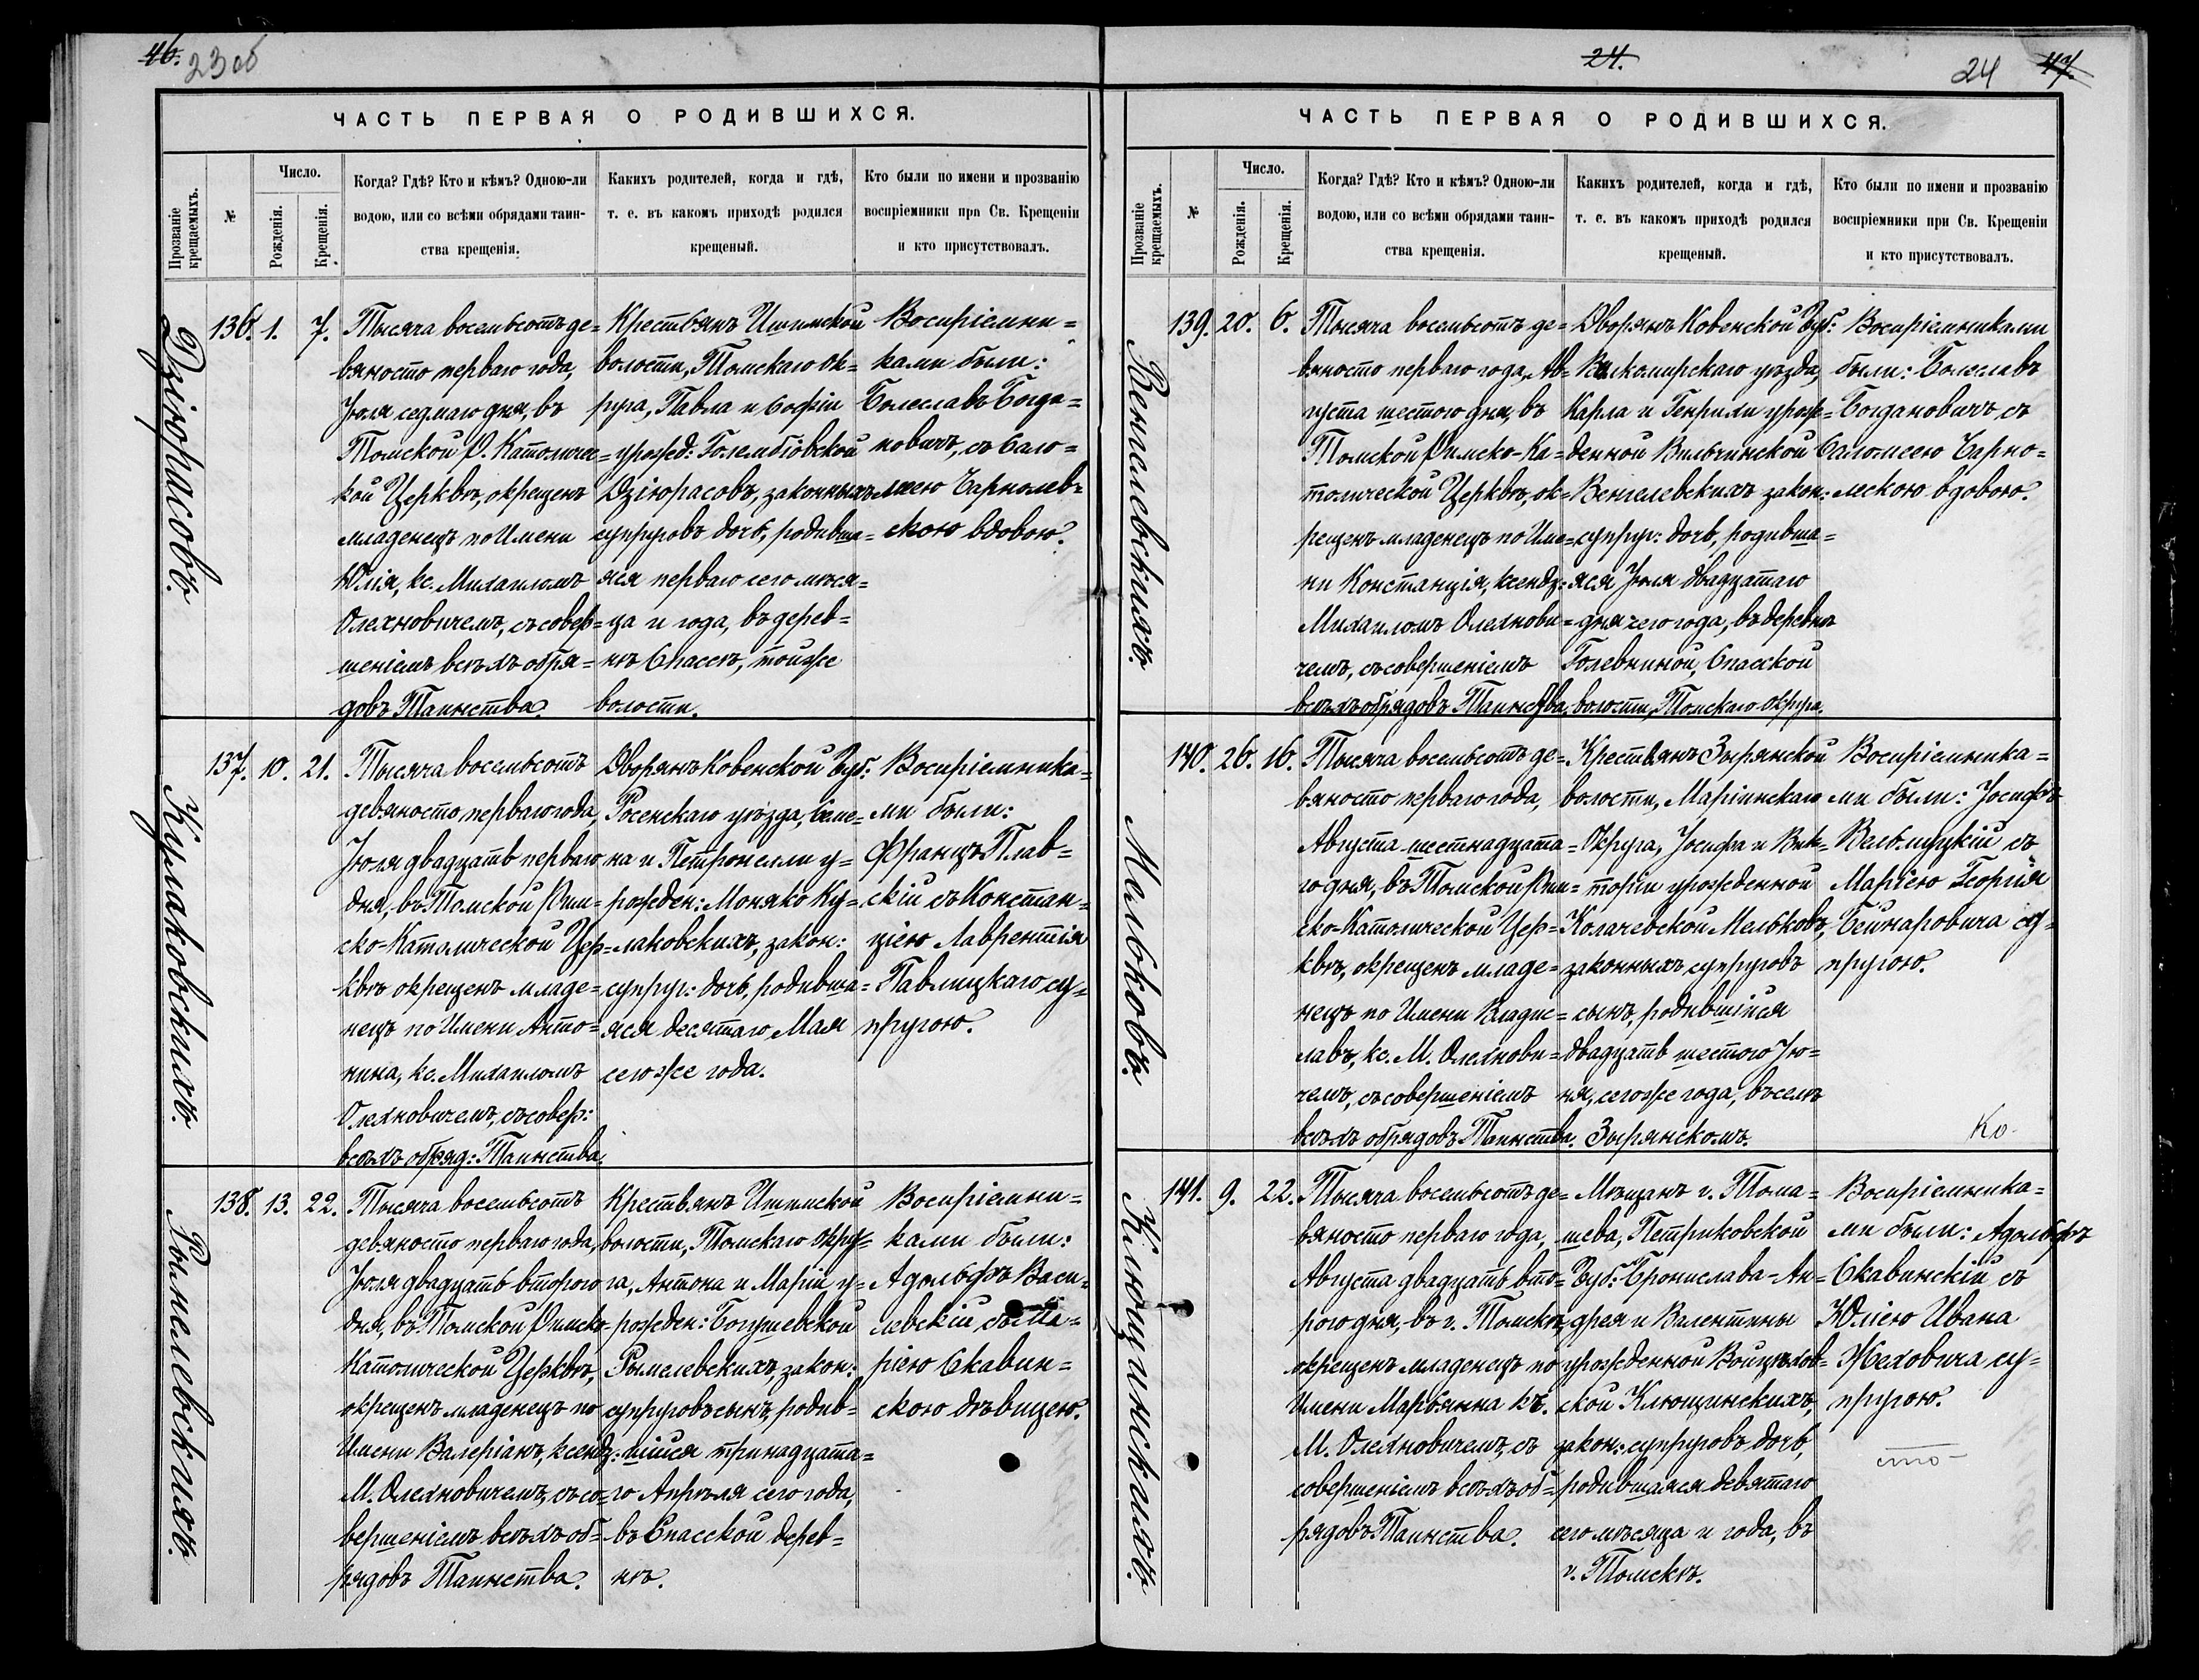 46. 23об
ЧАСТЬ ПЕРВАЯ О РОДИВШИХСЯ.
Прозваніе крещаемыхъ.
№
Число.
Рожденія.
Крещенія.
Когда? Гдѣ? Кто и кѣмъ? Одною-ли
водою, или со всѣми обрядами таин-
ства крещенія.
Какихъ родителей, когда и гдѣ,
т. е. въ какомъ приходѣ родился
крещеный.
Кто были по имени и прозванію
воспріемники при Св. Крещеніи
и кто присутствовалъ.
Дзіюрасовъ.
136. 1. 7.
Тысяча восемьсотъ де=
вяносто перваго года,
Іюля седмаго дня, въ
Томской Р. Католичес=
кой Церквѣ, окрещенъ
младенецъ по Имени
Юлія, кс. Михаиломъ
Олехновичемъ, съ совер=
шеніемъ всѣхъ обря=
довъ Таинства.
Крестьянъ Ишимской
волости, Томскаго Ок=
руга, Павла и Софіи
урожд: Голембіовской
Дзіюрасовъ, законныхъ
супруговъ дочь, родивша=
яся перваго сего мѣся=
ца и года, въ дерев=
нѣ Спасскѣ, тойже
волости.
Воспріемни=
ками были:
Болеславъ Богда=
новичъ, съ Сало=
меею Чарнолев=
скою вдовою.
Кумаковскихъ.
137. 10. 21.
Тысяча восемьсотъ
девяносто перваго года,
Іюля двадцать перваго
дня, въ Томской Рим=
ско-Католической Цер=
квѣ окрещенъ младе=
нецъ по Имени Анто=
нина, кс. Михаиломъ
Олехновичемъ, съ совер:
всѣхъ обряд: Таинства.
Дворянъ Ковенской Губ:
Росенскаго уѣзда, Семе=
на и Петронелли у=
рожден: Моняко Ку=
маковскихъ, закон:
супруг: дочь, родивша=
яся десятаго Мая
сегоже года.
Воспріемника=
ми были:
Францъ Плав=
скій съ Констан=
ціею Лаврентія
Павлицкаго су=
пругою.
Рымелевскихъ.
138. 13. 22.
Тысяча восемьсотъ
девяносто перваго года,
Іюля двадцать второго
дня, въ Томской Римско
Католической Церквѣ,
окрещенъ младенецъ по
Имени Валеріанъ, ксендз:
М. Олехновичемъ, съ со=
вершеніемъ всѣхъ об=
рядовъ Таинства.
Крестьянъ Ишимской
волости, Томскаго Окру=
га, Антона и Маріи у=
рожден: Богушевской
Рымелевскихъ, закон:
супруговъ сынъ, родив=
шійся тринадцата=
го Апрѣля сего года,
въ Спасской дерев=
нѣ.
Воспріемни=
ками были:
Адольфъ Васи=
левскій съ Ма=
ріею Скавин=
скою дѣвицею.
24. 24 47.
ЧАСТЬ ПЕРВАЯ О РОДИВШИХСЯ.
Прозваніе крещаемыхъ.
№
Число.
Рожденія.
Крещенія.
Когда? Гдѣ? Кто и кѣмъ? Одною-ли
водою, или со всѣми обрядами таин-
ства крещенія.
Какихъ родителей, когда и гдѣ,
т. е. въ какомъ приходѣ родился
крещеный.
Кто были по имени и прозванію
воспріемники при Св. Крещеніи
и кто присутствовалъ.
Венгелевскихъ.
139. 20. 6.
Тысяча восемьсотъ де=
вяносто перваго года, Ав=
густа шестого дня, въ
Томской Римско-Ка=
толической Церквѣ, ок=
рещенъ младенецъ по Име=
ни Констанція, ксендз:
Михаиломъ Олехнови=
чемъ, съ совершеніемъ
всѣхъ обрядовъ Таинства.
Дворянъ Ковенской Губ:
Вилкомирскаго уѣзда,
Карла и Генрихи урож=
денной Вильчинской
Венгелевскихъ закон:
супруг: дочь, родивша=
яся Іюля двадцатаго
дня сего года, въ деревнѣ
Голевниной, Спасской
волости, Томскаго Округа.
Воспріемниками
были: Болеславъ
Богдановичъ, съ
Саломеею Чарно=
лескою вдовою.
Мельковъ.
140. 26. 16.
Тысяча восемьсотъ де=
вяносто перваго года,
Августа шестнадцата=
го дня, въ Томской Рим=
ско-Католической Цер=
квѣ, окрещенъ младе=
нецъ по Имени Владис=
лавъ, кс. М. Олехнови=
чемъ, съ совершеніемъ
всѣхъ обрядовъ Таинства.
Крестьянъ Зырянской
волости, Маріинскаго
Округа, Іосифа и Вик=
торіи урожденной
Колачевской Мельковъ,
законныхъ супруговъ
сынъ, родившійся
двадцать шестого Ію=
ня, сегоже года, въ селѣ
Зырянскомъ.
Воспріемника=
ми были: Іосифъ
Вельмуцкій съ
Маріею Георгія
Бейнаровича су=
пругою.
Ко-
Клющинскихъ.
141. 9. 22.
Тысяча восемьсотъ де=
вяносто перваго года,
Августа двадцать вто=
рого дня, въ г. Томскѣ,
окрещенъ младенецъ по
Имени Марьянна кс.
М. Олехновичемъ, съ
совершеніемъ всѣхъ об=
рядовъ Таинства.
Мѣщанъ г. Тома=
шева, Петриковской
Губ: Бронислава-Ан=
дрея и Валентины
урожденной Войцѣхов=
ской Клющинскихъ,
закон: супруговъ дочь,
родившаяся девятаго
сего мѣсяца и года, въ
г. Томскѣ.
Воспріемника=
ми были: Адольфъ
Скавинскій съ
Юліею Ивана
Жеховича су=
пругою.